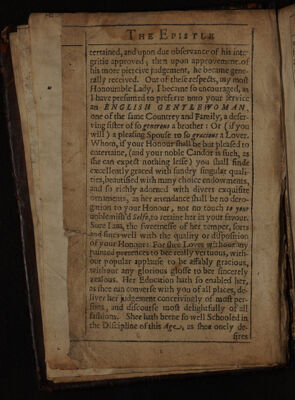 THE EPISTLE
tertained, and upon due observance of his inte-
gritie approved; then upon approvement of
his more piercive judgement, he became gene-
rally received. Out of these respects, my most
Honourable Lady, I became so encouraged, as
I have presumed to preferre unto your service
an ENGLISH GENTLEWOMAN,
one of the same Countrey and Family; a deser-
ving sister of so generous a brother: Or (if you
will) a pleasing Spouse to so gracious a Lover.
Whom, if your Honour shall be but pleased to
entertaine, (and your noble Candor is such, as
she can expect nothing lesse) you shall finde
excellently graced with sundry singular quali-
ties, beautified with many choice endowments,
and so richly adorned with divers exquisite
ornaments, as her attendance shall be no dero-
gation to your Honour, nor no touch to your
unblemish'd Selfe, to retaine her in your favour.
Sure I am, the sweetnesse of her temper, sorts
and suites well with the quality or disposition
of your Honour: For shee Loves without any
painted pretences to bee really vertuous, with-
out popular applause to be affably gracious,
without any glorious glosse to bee sincerely
zealous. Her Education hath so enabled her,
as shee can converse with you of all places, de-
liver her judgement conceivingly of most per-
sons, and discourse most delightfully of all
fashions. Shee hath beene so well Schooled in
the Discipline of this Age, as shee onely de-
sires